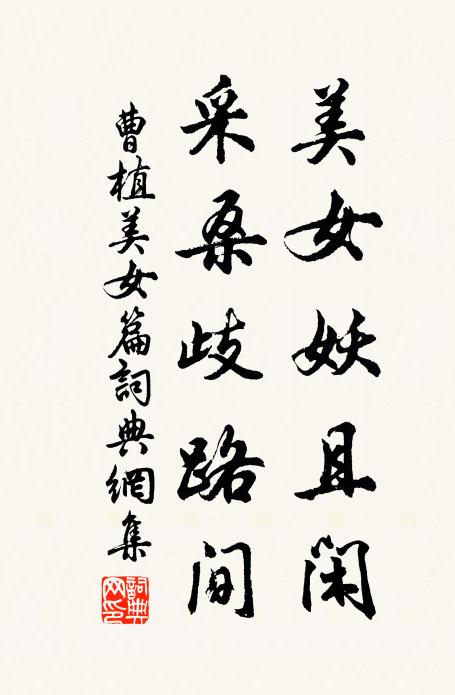 美女妖且閑
采桑歧路間
曹植美女篇詞典網集
詞典網印